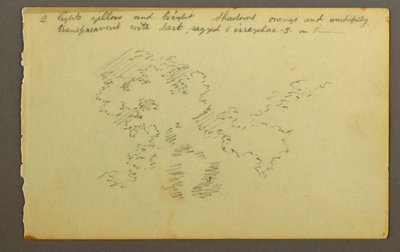 2 lights yellow and bright Shadows orange and wonderfully
transparent with dark, ragged & irregular -S on